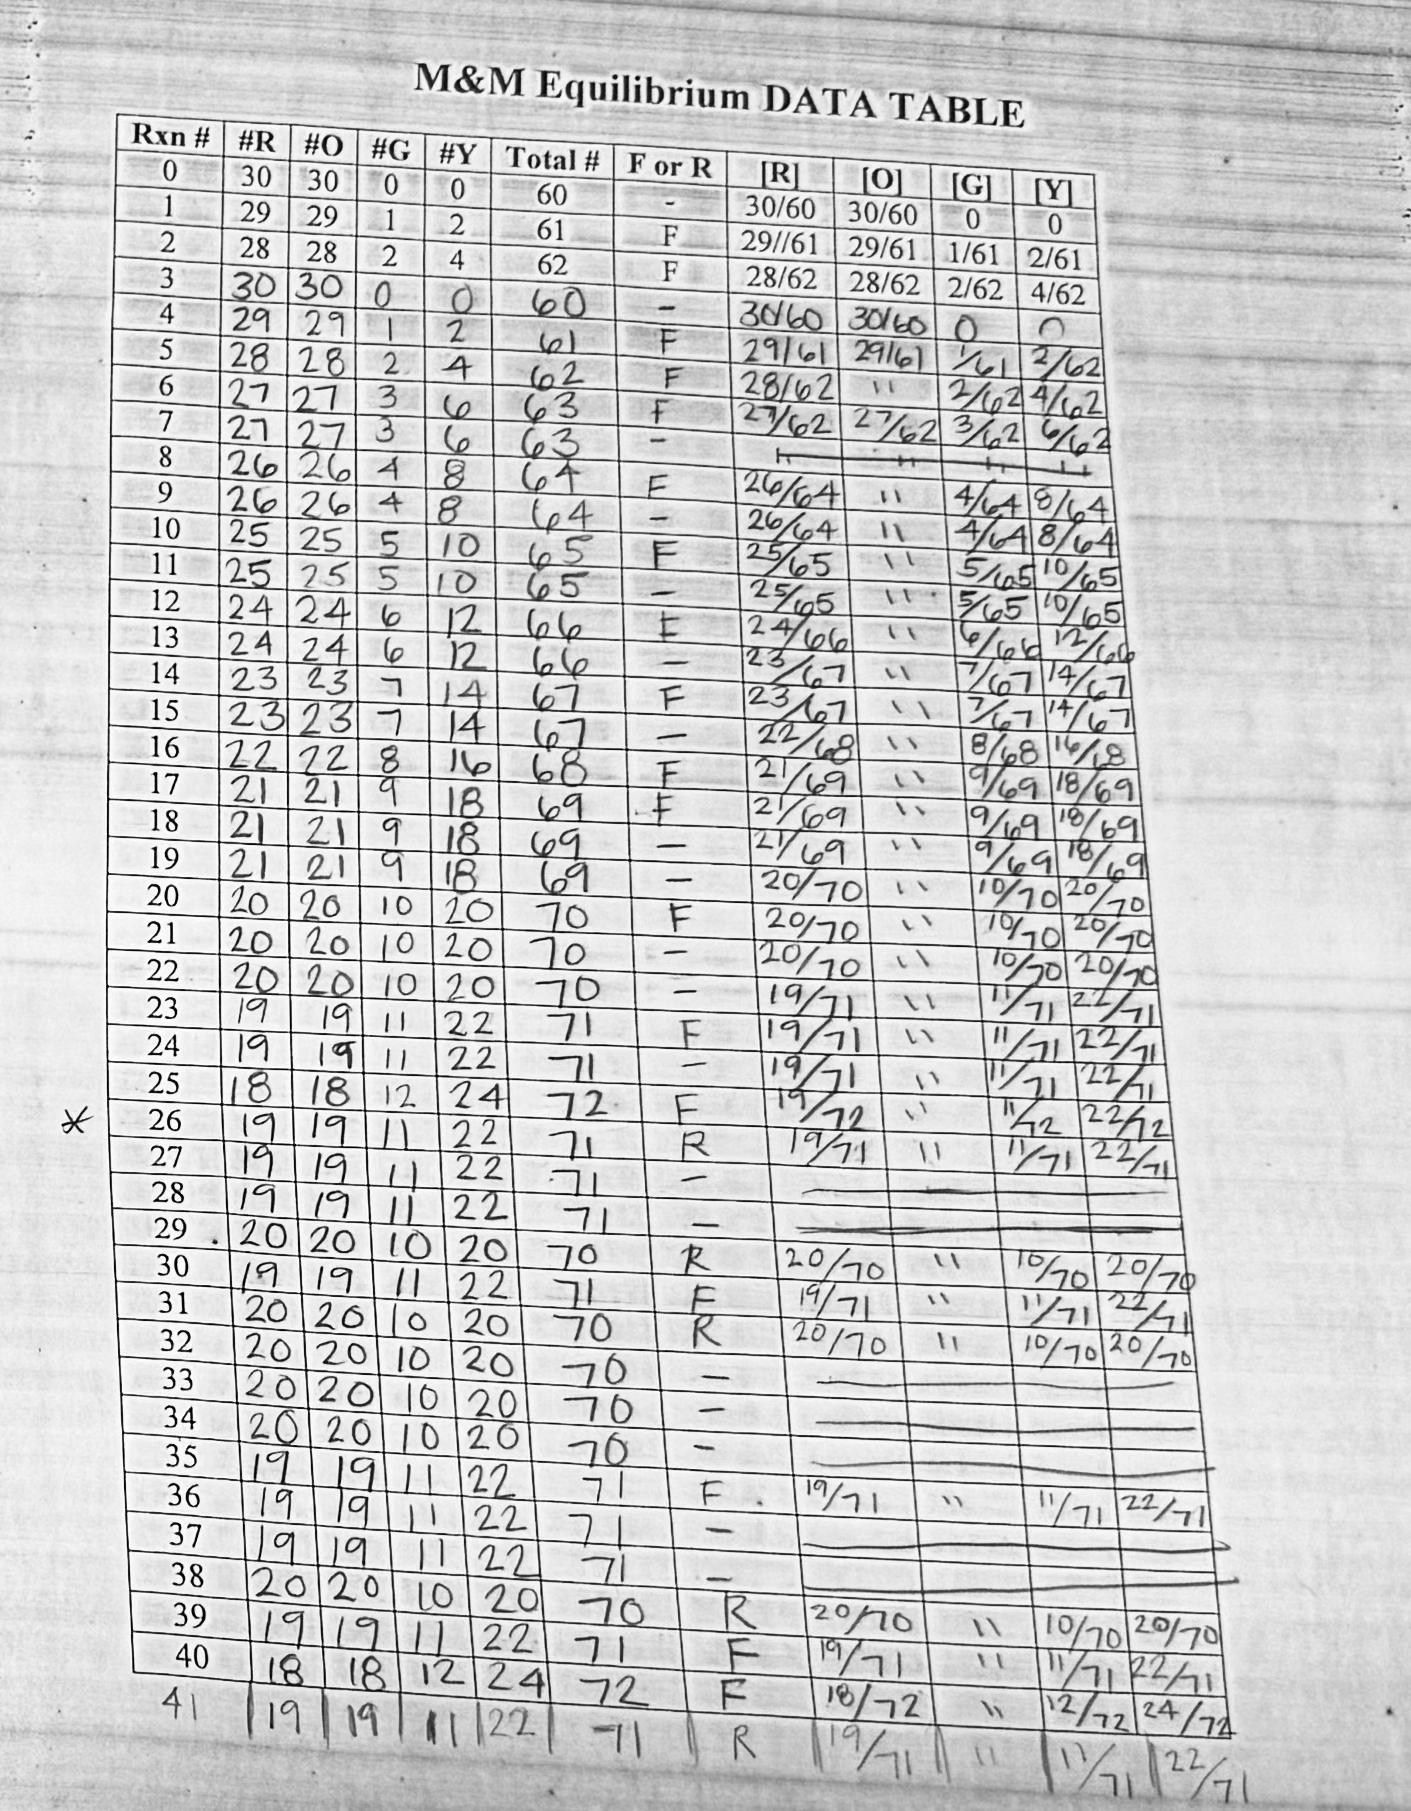 M&M Equilibrium DATA TABLE
Rxn # #R #O #G #Y Total # F or R [R] [O] [G] [Y]
0 30 30 0 0 60 - 30/60 30/60 0 0
1 29 29 1 2 61 F 29//61 29/61 1/61 2/61
2 28 28 2 4 62 F 28/62 28/62 2/62 4/62
3 30 30 0 0 60 - 30/60 30/60 0 0
4 29 29 1 2 61 F 29/61 29/61 1/61 2/62
5 28 28 2 4 62 F 28/62 " 2/62 4/62
6 27 27 3 6 63 F 27/62 27/62 3/62 6/62
7 27 27 3 6 63 - " " " "
8 26 26 4 8 64 F 26/64 " 4/64 8/64
9 26 26 4 8 64 - 26/64 " 4/64 8/64
10 25 25 5 10 65 F 25/65 " 5/65 10/65
11 25 25 5 10 65 - 25/65 " 5/65 10/65
12 24 24 6 12 66 F 24/66 " 6/66 12/66
13 24 24 6 12 66 - 23/67 " 7/67 14/67
14 23 23 7 14 67 F 23/67 " 7/67 14/67
15 23 23 7 14 67 - 22/68 " 8/68 16/68
16 22 22 8 16 68 F 21/69 " 9/69 18/69
17 21 21 9 18 69 F 21/69 " 9/69 18/69
18 21 21 9 18 69 - 21/69 " 9/69 18/69
19 21 21 9 18 69 - 20/70 " 10/70 20/70
20 20 20 10 20 70 F 20/70 " 10/70 20/70
21 20 20 10 20 70 - 20/70 " 10/70 20/70
22 20 20 10 20 70 - 19/71 " 11/71 22/71
23 19 19 11 22 71 F 19/71 " 11/71 22/71
24 19 19 11 22 71 - 19/71 " 11/71 22/71
25 18 18 12 24 72 F 19/72 " 11/72 22/72
* 26 19 19 11 22 71 R 19/71 " 11/71 22/71
27 19 19 11 22 71 -
28 19 19 11 22 71 -
29 20 20 10 20 70 R 20/70 " 10/70 20/70
30 19 19 11 22 71 F 19/71 " 11/71 22/71
31 20 20 10 20 70 R 20/70 " 10/70 20/70
32 20 20 10 20 70 -
33 20 20 10 20 70 -
34 20 20 10 20 70 -
35 19 19 11 22 71 F 19/71 " 11/71 22/71
36 19 19 11 22 71 -
37 19 19 11 22 71 -
38 20 20 10 20 70 R 20/70 " 10/70 20/70
39 19 19 11 22 71 F 19/71 " 11/71 22/71
40 18 18 12 24 72 F 18/72 " 12/72 24/72
41 19 19 11 22 71 R 19/71 " 11/71 22/71